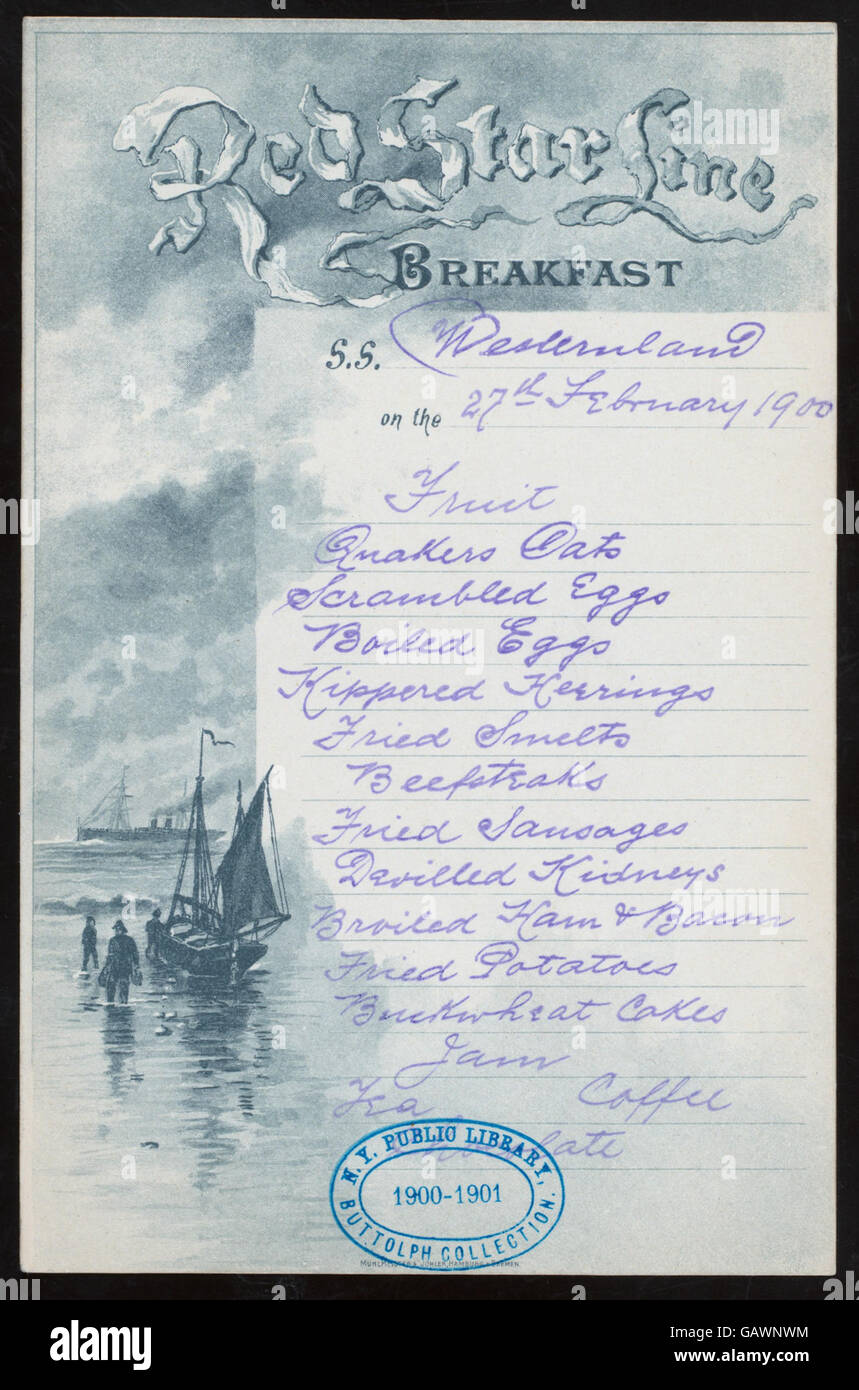 Red Star Line
BREAKFAST
S.S. Westernland
on the 27th February 1900
Fruit
Quakers Oats
Scrambled Eggs
Boiled Eggs
Kippered Herrings
Fried Smelts
Beefsteaks
Fried Sausages
Devilled Kidneys
Broiled Ham & Bacon
Fried Potatoes
Buckwheat Cakes
Jam
Tea Coffee
Chocolate
N.Y. PUBLIC LIBRARY,
1900-1901
BUTTOLPH COLLECTION.
MÜHLMEISTER & JOHLER, HAMBURG & BREMEN.
alamy
alamy
Image ID: GAWNWM
www.alamy.com